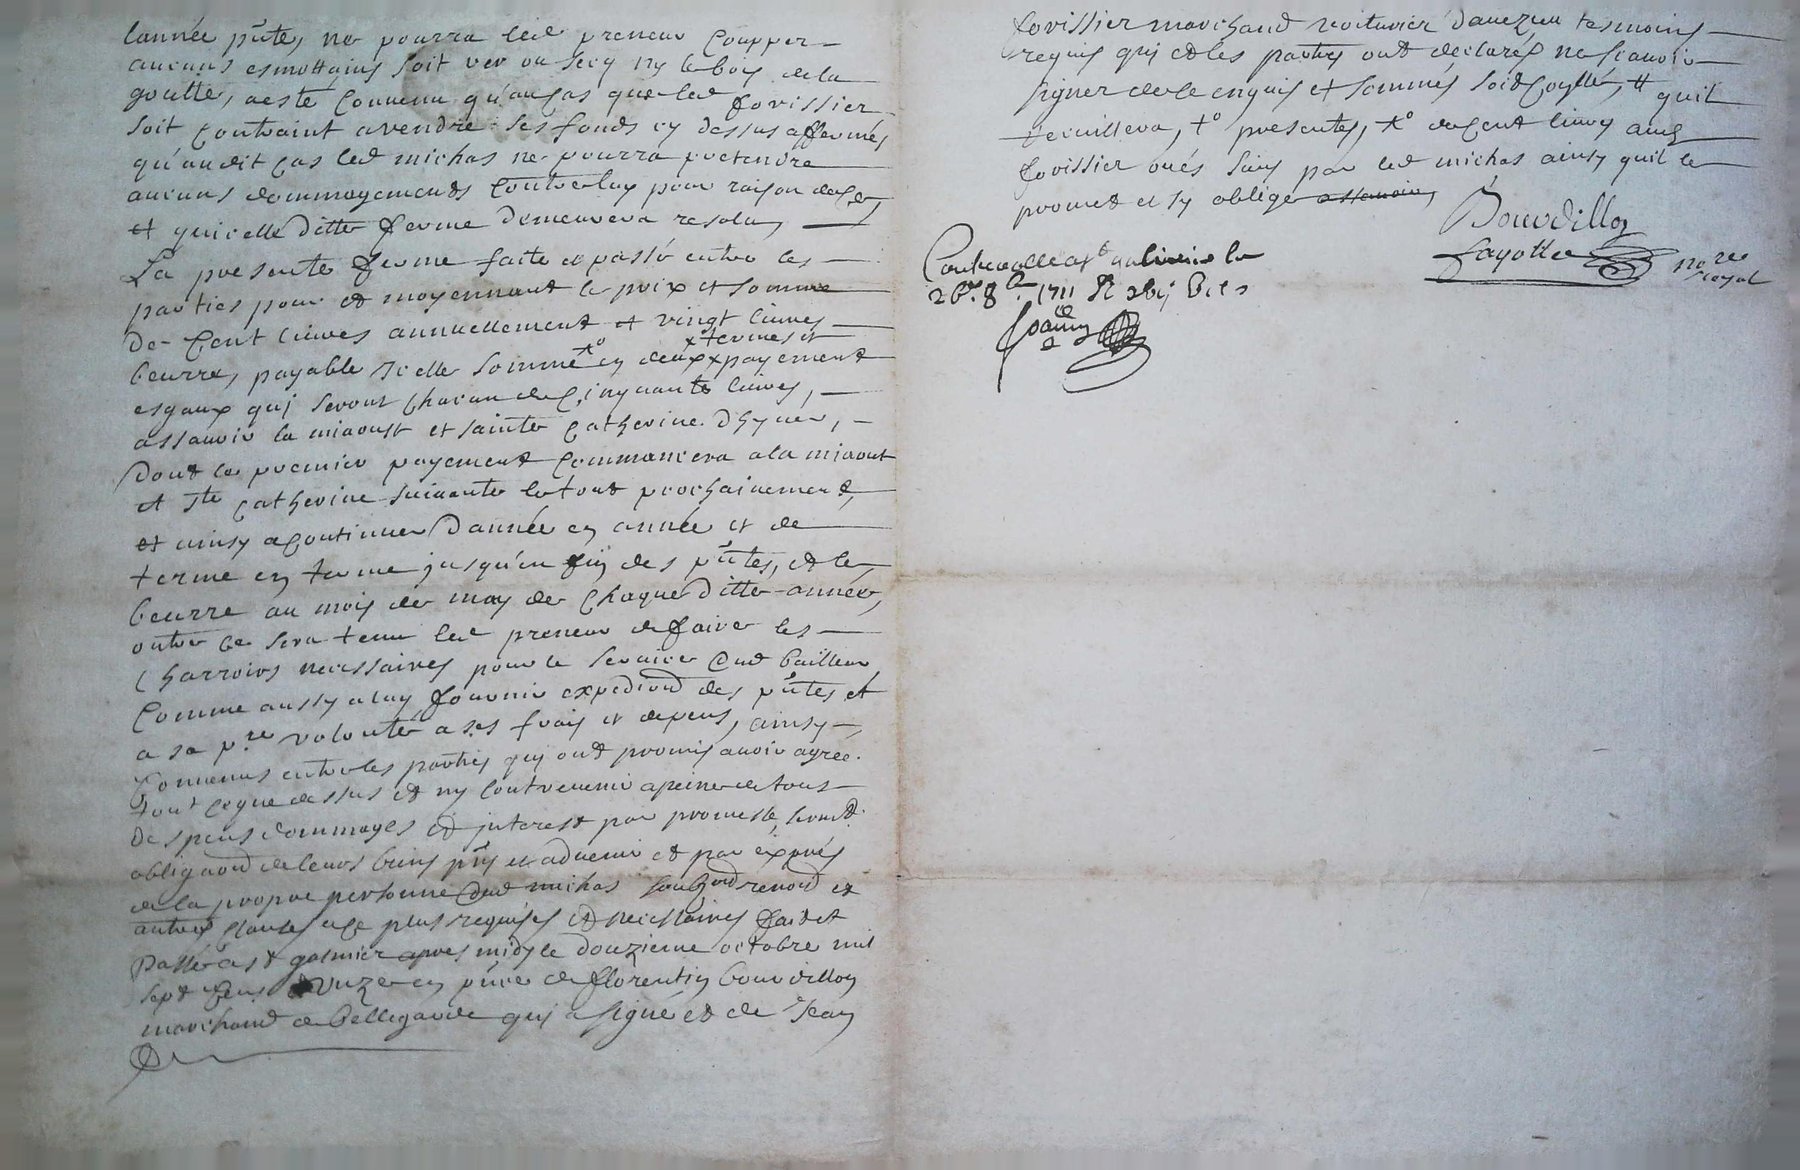 lannée pñte, ne pourra led preneur Coupper
aucuns esmottains soit ver ou secq ny le bois de la
goutte, a esté Convenu qu'au cas que led fovissier
soit Contraint a vendre ses fonds cy dessus affermés
qu'audit cas led michas ne pourra pretendre
aucuns dommagements Contre luy pour raison de ce
et qu'icelle ditte ferme demeurera resolu,
La presente ferme faite et passé entre les
parties pour et moyennant le prix et somme
De Cent livres annuellement et vingt livres
beurre, payable Icelle somme to en deux x payement
x termes et
esgaux quj seront chacun de Cinquante livres,
assavoir la miaoust et sainte Catherine d'hyver,
Dont le premier payement Commancera a la miaout
et Ste Catherine suivante le tout prochainement,
et ainsy a Continuer d'année en année et de
terme en terme jusqu'en fin des pñtes, et le
beurre au mois de may de Chaque ditte année,
outre ce sera tenu led preneur de faire les
Charrois necessaires pour le service dud bailleur
Comme aussy a luy fournir expediond des pñtes et
a sa pre volonté a ses frais et depens, ainsy
Convenus entre les parties quj ont promis avoir agreé
tout ce que dessus et ny Contrevenir a peine de tous
Despens dommages et jnterest par promesse, sermt
obligaond de leurs biens pñs et advenir et par exprés
de la propre personne dud michas renond et
autres Clauses a ce plus requises et necessaires fait et
Passé a st galmier apres midy le douzieme octobre mil
sept Cens Unze en pñce de florentin bourdillon
marchand de bellegarde quj a signé et de Jean
fovissier marchand voiturier d'auezieu tesmoins
requis quj et les parties ont declarés ne scavoir
signer de ce enquis et sommés soit Coyllé, # quil
recuillera, to presentes, xo de cent livres aud
fovissier par led michas ainsy quil le
promet et sy oblige assavoir
Bourdillon
Fayolle nore royal
Controollé a st galmier le
26e 8bre 1711